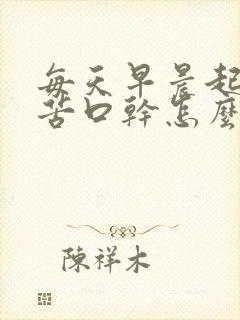 每天早晨起
苦口幹怎麼
陳祥木